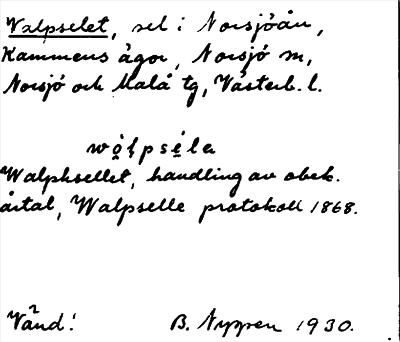 Valpselet, sel i Norsjöån,
Kammens ägor, Norsjö m,
Norsjö och Malå tg, Västerb. l.
wò̜ļpsé̜la
Walphsellet, handling av obek.
årtal, Walpselle protokoll 1868.
Vänd! B. Nygren 1930.